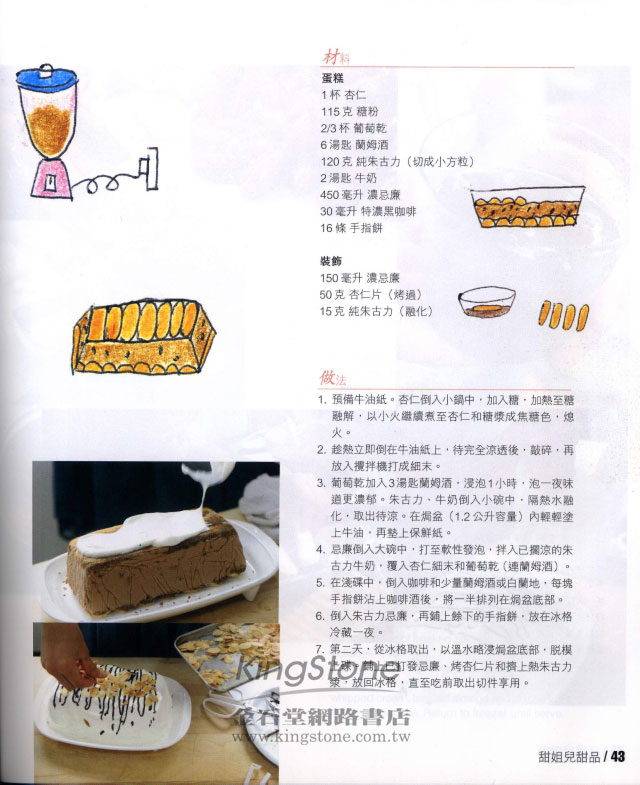 材料
蛋糕
1 杯 杏仁
115 克 糖粉
2/3 杯 葡萄乾
6 湯匙 蘭姆酒
120 克 純朱古力（切成小方粒）
2 湯匙 牛奶
450 毫升 濃忌廉
30 毫升 特濃黑咖啡
16 條 手指餅
裝飾
150 毫升 濃忌廉
50 克 杏仁片（烤過）
15 克 純朱古力（融化）
做法
1. 預備牛油紙。杏仁倒入小鍋中，加入糖，加熱至糖
融解，以小火繼續煮至杏仁和糖漿成焦糖色，熄
火。
2. 趁熱立即倒在牛油紙上，待完全涼透後，敲碎，再
放入攪拌機打成細末。
3. 葡萄乾加入3湯匙蘭姆酒，浸泡1小時，泡一夜味
道更濃郁。朱古力、牛奶倒入小碗中，隔熱水融
化，取出待涼。在焗盆（1.2公升容量）內輕輕塗
上牛油，再墊上保鮮紙。
4. 忌廉倒入大碗中，打至軟性發泡，拌入已擱涼的朱
古力牛奶，覆入杏仁細末和葡萄乾（連蘭姆酒）。
5. 在淺碟中，倒入咖啡和少量蘭姆酒或白蘭地，每塊
手指餅沾上咖啡酒後，將一半排列在焗盆底部。
6. 倒入朱古力忌廉，再鋪上餘下的手指餅，放在冰格
冷藏一夜。
7. 第二天，從冰格取出，以溫水略浸焗盆底部，脫模
上碟。鋪上已打發忌廉、烤杏仁片和擠上熱朱古力
漿，放回冰格，直至吃前取出切件享用。
KingStone
金石堂網路書店
www.kingstone.com.tw
甜姐兒甜品 / 43